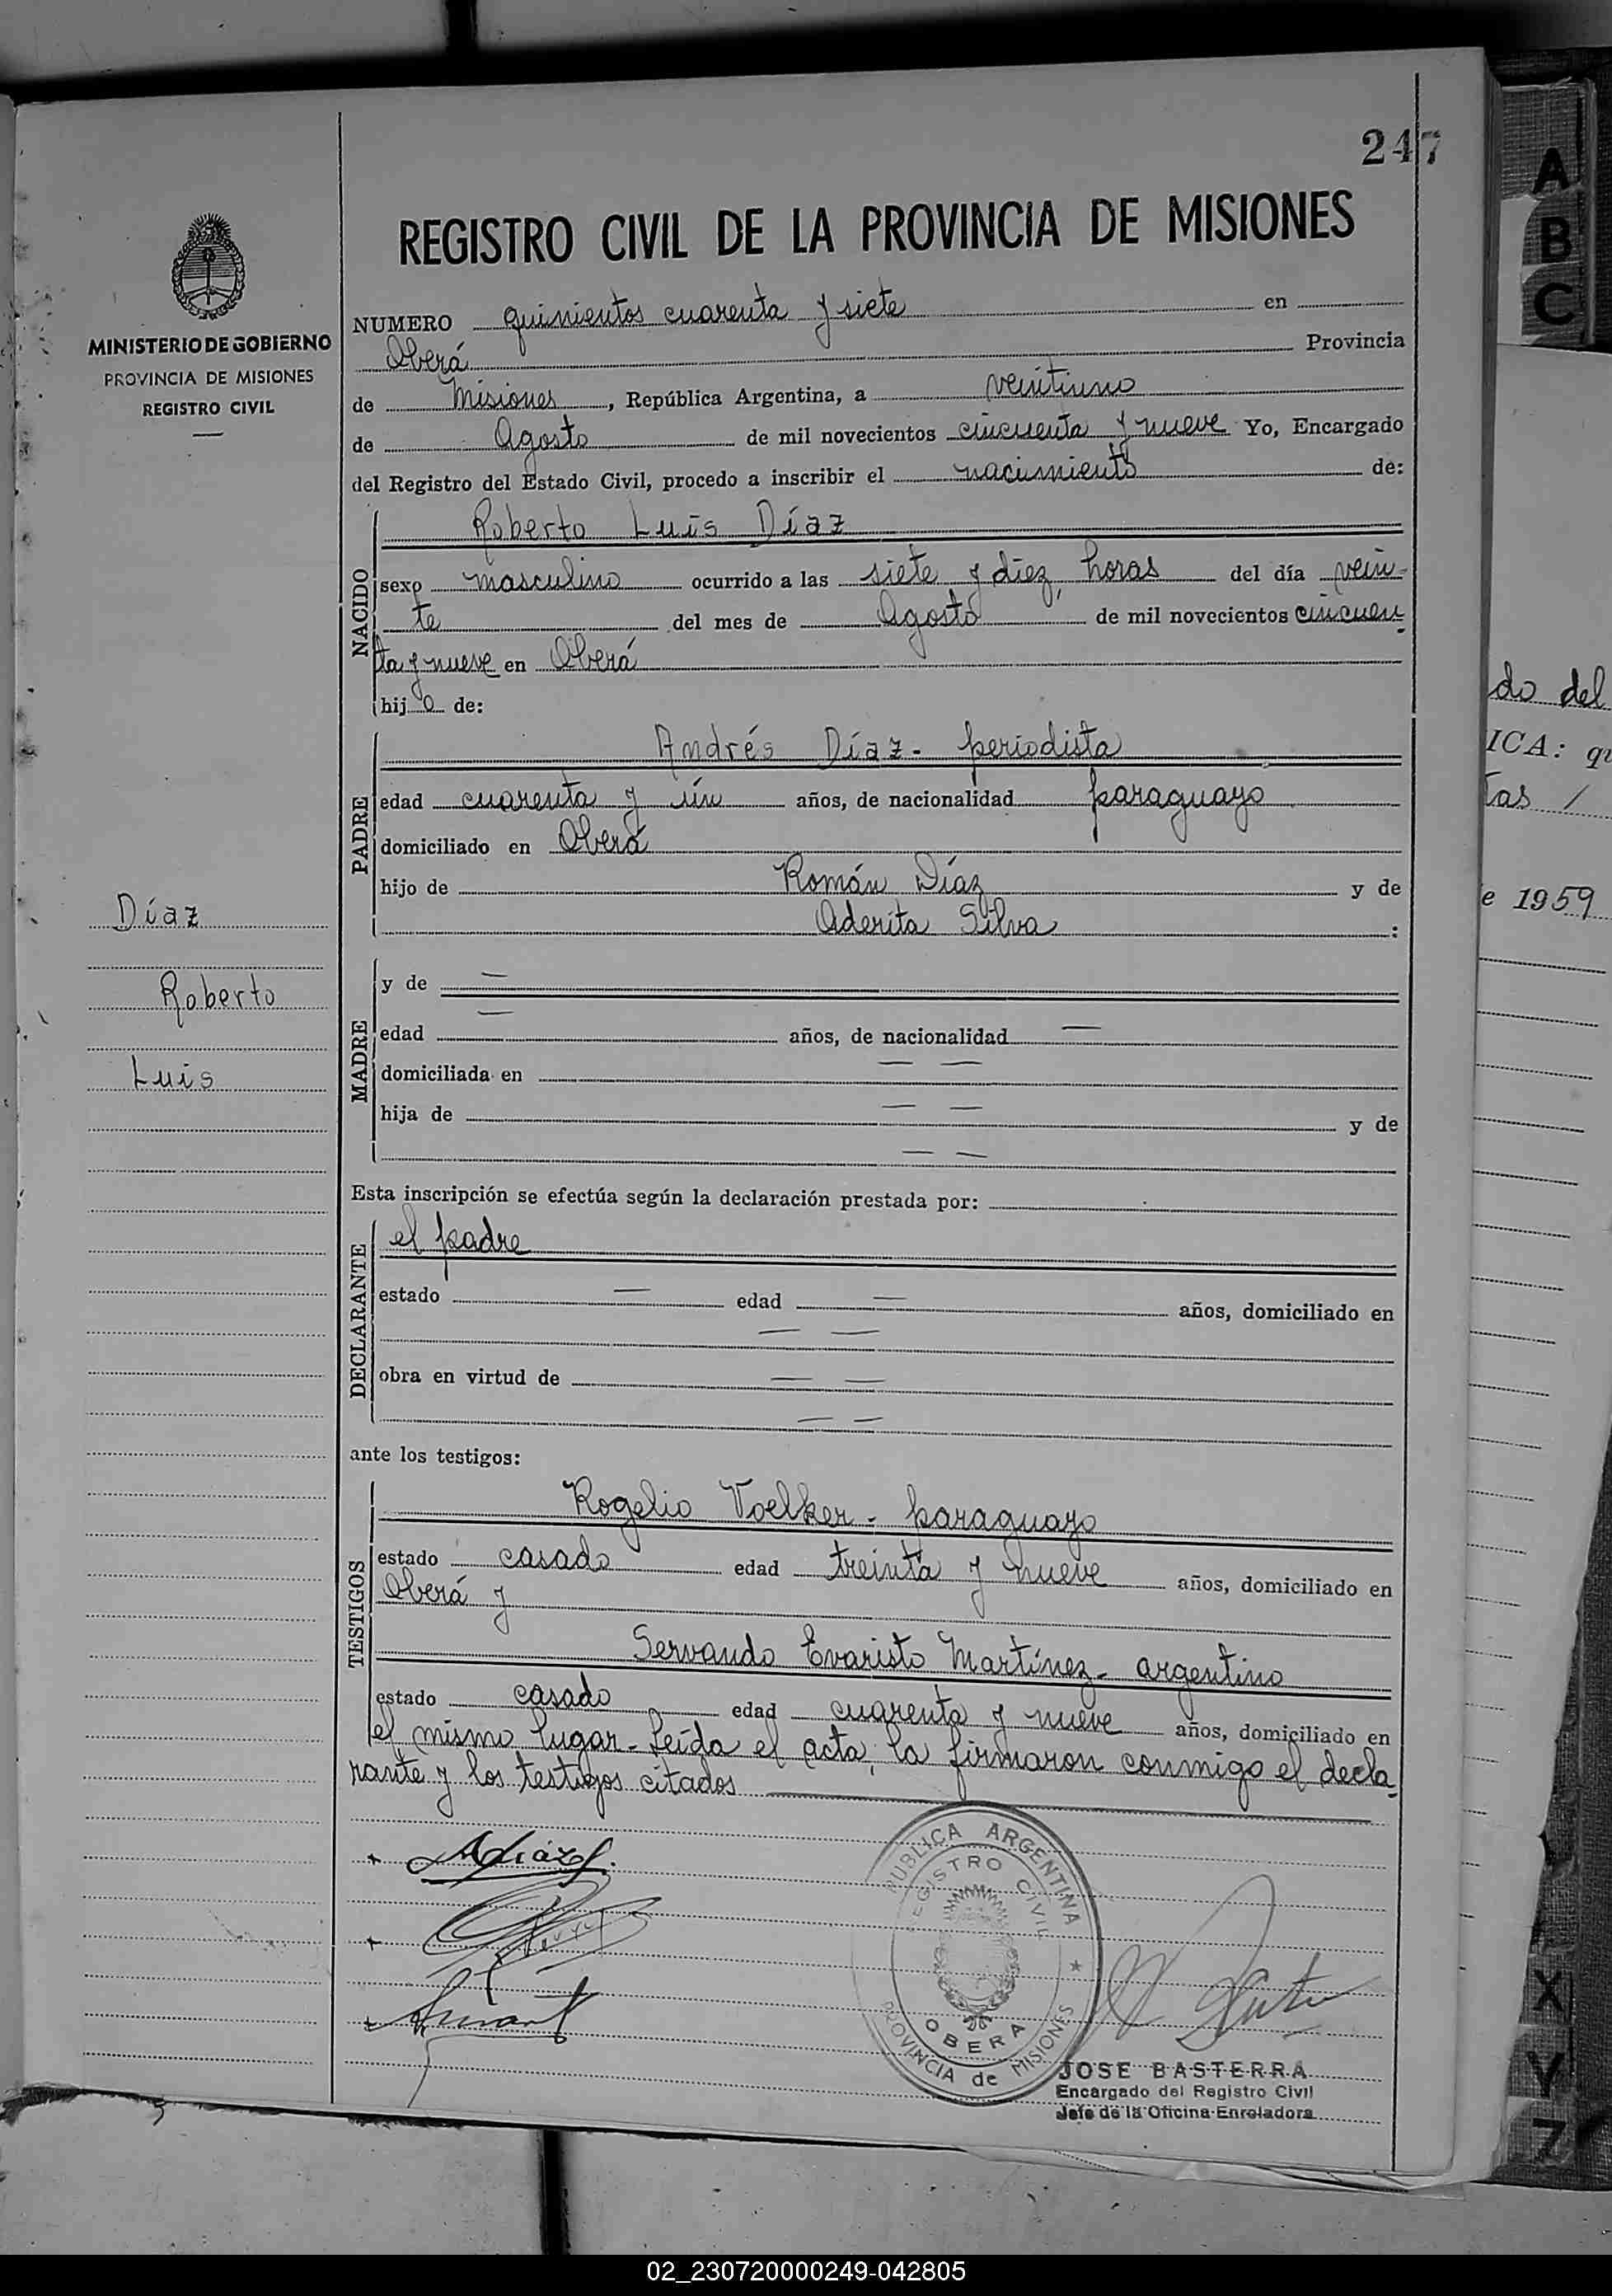 247
REGISTRO CIVIL DE LA PROVINCIA DE MISIONES
MINISTERIO DE GOBIERNO
PROVINCIA DE MISIONES
REGISTRO CIVIL
NUMERO quinientos cuarenta y siete en
Oberá Provincia
de Misiones, República Argentina, a veintiuno
de Agosto de mil novecientos cincuenta y nueve Yo, Encargado
del Registro del Estado Civil, procedo a inscribir el nacimiento de:
NACIDO
Roberto Luis Díaz
sexo masculino ocurrido a las siete y diez horas del día vein-
te del mes de Agosto de mil novecientos cincuen-
ta y nueve en Oberá
hijo de:
PADRE
Andrés Díaz - periodista
edad cuarenta y un años, de nacionalidad paraguayo
domiciliado en Oberá
hijo de Román Díaz y de
Aderita Silva :
Díaz
Roberto
Luis
MADRE
y de —
edad — años, de nacionalidad —
domiciliada en — —
hija de — — y de
— —
Esta inscripción se efectúa según la declaración prestada por:
DECLARANTE
el padre
estado — edad — años, domiciliado en
— —
obra en virtud de — —
— —
ante los testigos:
TESTIGOS
Rogelio Voelker - paraguayo
estado casado edad treinta y nueve años, domiciliado en
Oberá y
Servando Evaristo Martínez - argentino
estado casado edad cuarenta y nueve años, domiciliado en
el mismo lugar - Leída el acta, la firmaron conmigo el decla-
rante y los testigos citados
ADíaz
PUBLICA ARGENTINA
REGISTRO CIVIL
OBERA
PROVINCIA de MISIONES
JOSE BASTERRA
Encargado del Registro Civil
Jefe de la Oficina Enroladora
A
B
C
X
Y
Z
do del
ICA: qu
tas /
e 1959
02_230720000249-042805